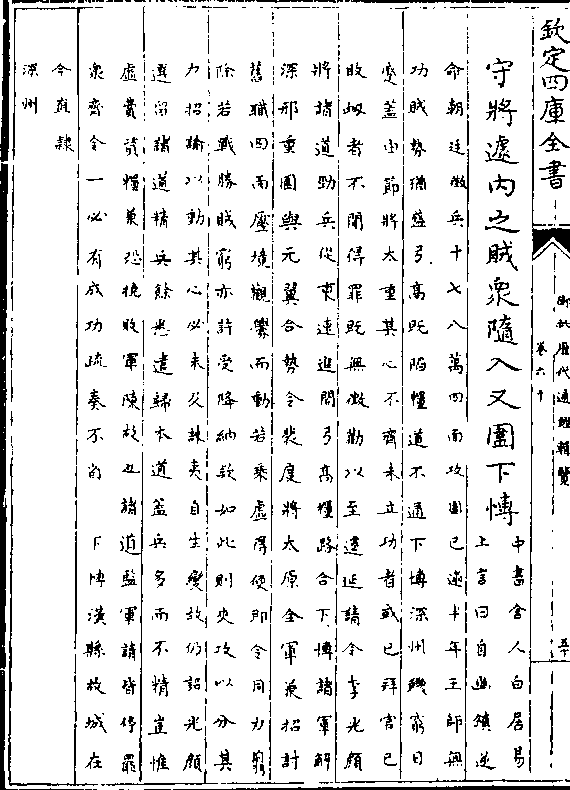 欽定四庫全書
御批歷代通鑑輯覽
卷六十
五十
守將遽内之賊衆隨入又圍下愽
中書舍人白居易
上言曰自幽鎮逆
命朝廷徵兵十七八萬四面攻圍已逾半年王師無
功賊勢猶盛弓高既陷糧道不通下博深州飢窮日
蹙盖由節將太重其心不齊未立功者或已拜官已
敗衂者不聞得罪既無徵勸以至遷延請令李光顔
將諸道勁兵從東速進開弓高糧路合下博諸軍解
深邢重圍與元翼合勢令裴度將太原全軍兼招討
舊職四面壓境觀釁而動若乘虛得便即令同力翦
除若戰勝賊窮亦許受降納欵如此則夾攻以分其
力招諭以動其心必未及誅夷自生變故仍詔光顔
選留諸道精兵餘悉遣歸本道盖兵多而不精豈惟
虛費貲糧兼恐撓敗軍陳故也諸道監軍請皆停罷
衆齊令一必有成功疏奏不省　下博漢縣故城在
今直隸
深州